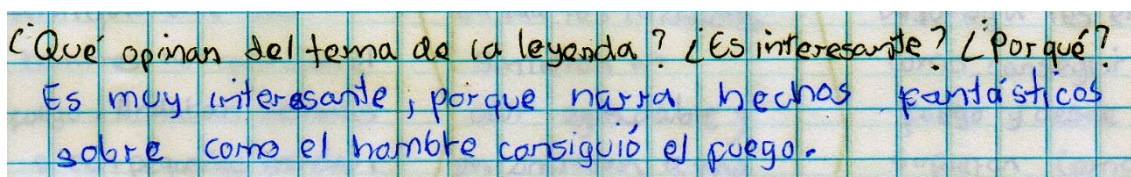 ¿Qué opinan del tema de la leyenda? ¿Es interesante? ¿Por qué?
Es muy interesante, porque narra hechos fantásticos
sobre como el hombre consiguió el fuego.